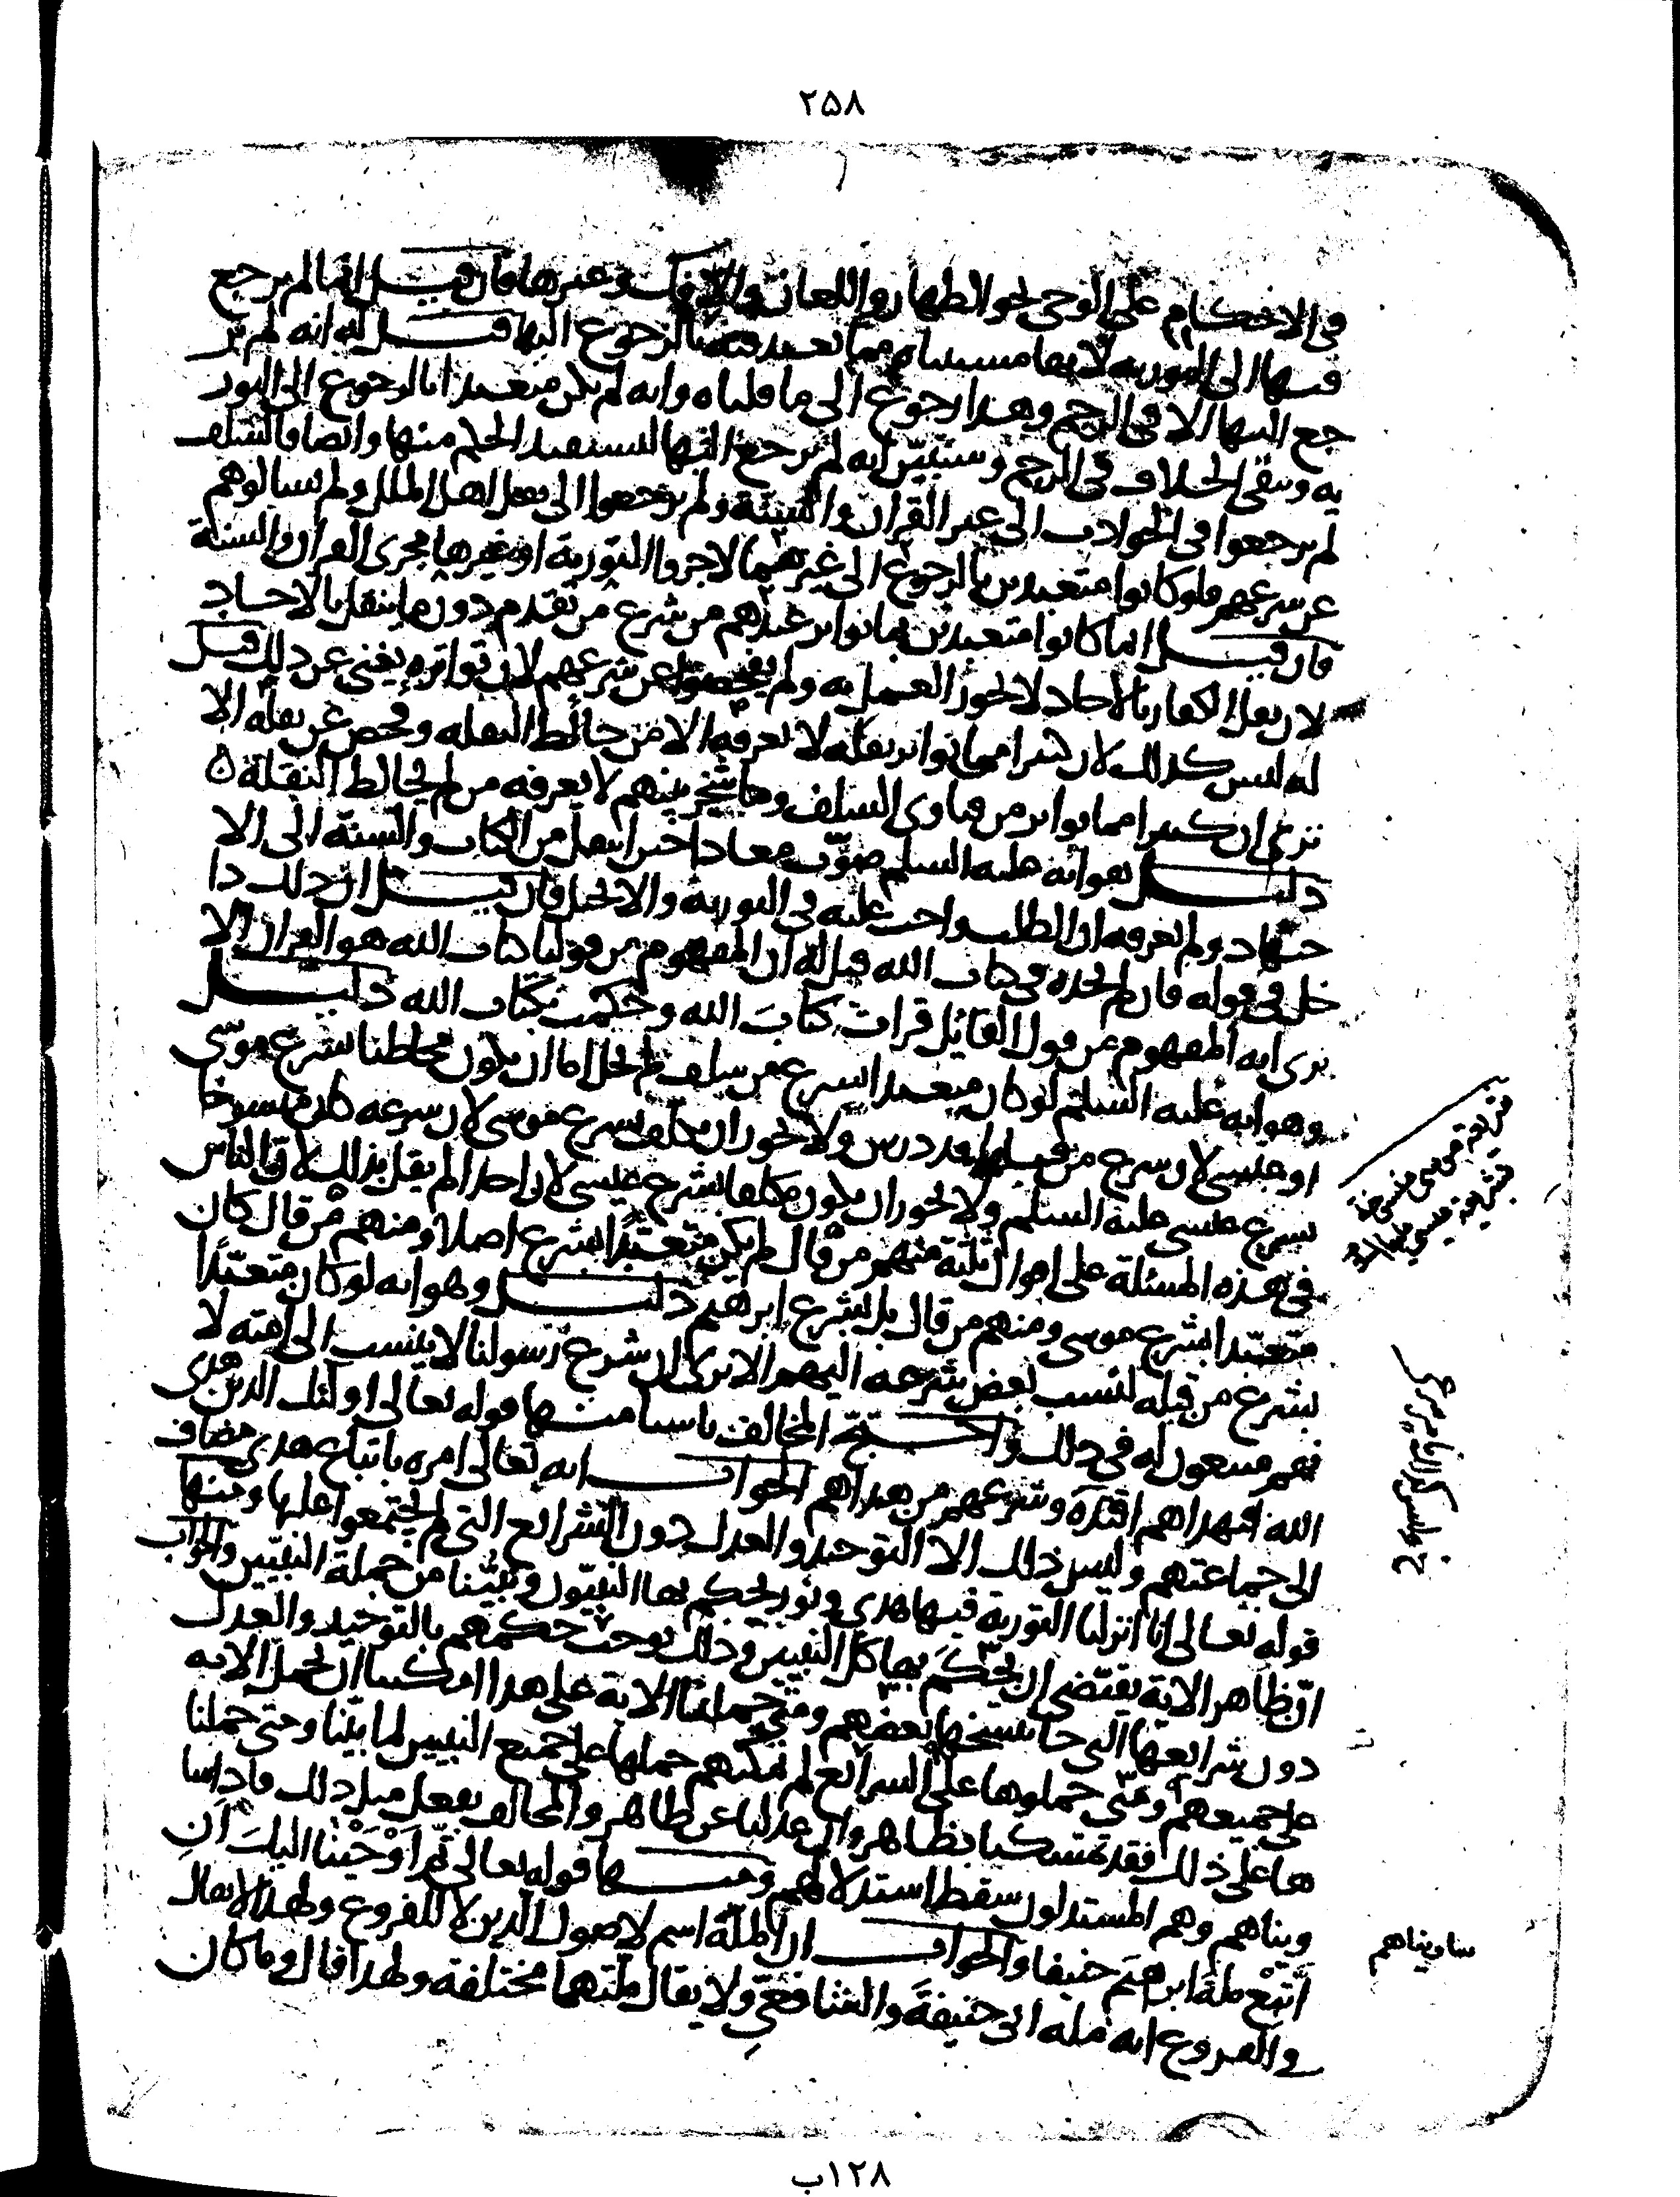 ٢٥٨
في الاحكام على الوحي نحو الظهار واللعان والافك وغيرها فان قيل انما لم يرجع
فيها الى التورية لانها مستثناه مما تعبد فيه بالرجوع اليها قيل له انه لم ير
جع اليها الا في الرجم وهذا رجوع الى ما قلناه وانه لم يكن متعبدا بالرجوع الى التور
ية وبقي الخلاف في الرجم وسنبين انه لم يرجع اليها ليستفيد الحكم منها وايضا فالسلف
لم يرجعوا في الحوادث الى غير القران والسنة ولم يرجعوا الى نقل اهل الملل ولم يسالوهم
عن شرعهم فلو كانوا متعبدين بالرجوع الى غيرهما لاجروا التورية او غيرها مجرى القران والسنة
فان قيل انما كانوا متعبدين بما تواتر عندهم من شرع من تقدم دون ما ينقل بالاحاد
لان نقل الكفار بالاحاد لا يجوز العمل به ولم يفحصوا عن شرعهم لان تواتره يغني عن ذلك قيل
له ليس كذلك لان كثيرا مما تواتر نقله لا يعرفه الا من خالط النقله وفحص عن نقله الا
ترى ان كثيرا مما تواتر من فتاوى السلف وما شجر بينهم لا يعرفه من لم يخالط النقلة
دليل هو انه عليه السلم صوب معاذا حين انتقل من الكتاب والسنة الى الا
جتهاد ولم يعرفه ان الطلب واجب عليه في التورية والانجيل فان قيل ان ذلك دا
خل في قوله فان لم تجده في كتاب الله قيل له ان المفهوم من قولنا كتاب الله هو القران الا
ترى انه المفهوم من قول القائل قرات كتاب الله وحكمت بكتاب الله دليل
وهو انه عليه السلم لو كان متعبدا بشرع من سلف لم يخل اما ان يكون مخاطبا بشرع موسى
او عيسى لان شرع من قبلهما قد درس ولا يجوز ان يكلف بشرع موسى لان شرعه كان منسوخا
بشرع عيسى عليه السلم ولا يجوز ان يكون مكلفا بشرع عيسى لان احدا لم يقل بذلك لان الناس
في هذه المسئلة على اقوال ثلثة منهم من قال لم يكن متعبدا بشرع اصلا ومنهم من قال كان
متعبدا بشرع موسى ومنهم من قال بل بشرع ابرهيم دليل وهو انه لو كان متعبدا
بشرع من قبله لنسب بعض شرعه اليهم الا ترى ان شرع رسولنا لا ينسب الى امته لا
نهم متبعون له في ذلك واحتج المخالف باشيا منها قوله تعالى اولئك الذين هدى
الله فبهداهم اقتده وشرعهم من هداهم الجواب انه تعالى امره باتباع هدى مضاف
الى جماعتهم وليس ذلك الا التوحيد والعدل دون الشرائع التي لم يجتمعوا عليها ومنها
قوله تعالى انا انزلنا التورية فيها هدى ونور يحكم بها النبيون ونبينا من جملة النبيين والجواب
ان ظاهر الاية يقتضي ان يحكم بها كل النبيين وذلك يوجب حكمهم بالتوحيد والعدل
دون شرايعها التي جا بنسخها بعضهم ومتى حملنا الاية على هذا امكننا ان نحمل الاية
على جميعهم ومتى حملوها على الشرائع لم يمكنهم حملها على جميع النبيين لما بينا ومتى حملنا
ها على ذلك فقد تمسكنا بظاهر وان عدلنا عن ظاهر والمخالف يفعل مثل ذلك فاذا سا
ويناهم وهم المستدلون سقط استدلالهم ومنها قوله تعالى ثم اوحينا اليك ان
اتبع ملة ابرهيم حنيفا والجواب ان الملة اسم لاصول الدين لا للفروع ولهذا لا يقال
في الفروع انه مله ابي حنيفة والشافعي ولا يقال ملتهما مختلفة ولهذا قال وما كان
ساويناهم
١٢٨ب